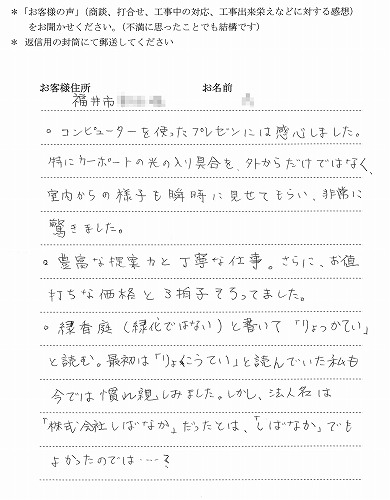 ＊「お客様の声」（商談、打合せ、工事中の対応、工事出来栄えなどに対する感想）
をお聞かせください。（不満に思ったことでも結構です）
＊ 返信用の封筒にて郵送してください
お客様住所　お名前
福井市
○ コンピューターを使ったプレゼンには感心しました。
特にカーポートの光の入り具合を、外からだけではなく、
室内からの様子も瞬時に見せてもらい、非常に
驚きました。
○ 豊富な提案力と丁寧な仕事。さらに、お値
打ちな価格と3拍子そろってました。
○ 緑香庭（緑化ではない）と書いて「りょっかてい」
と読む。最初は「りょくこうてい」と読んでいた私も
今では慣れ親しみました。しかし、法人名は
「株式会社しばなか」だったとは、「しばなか」でも
よかったのでは……？